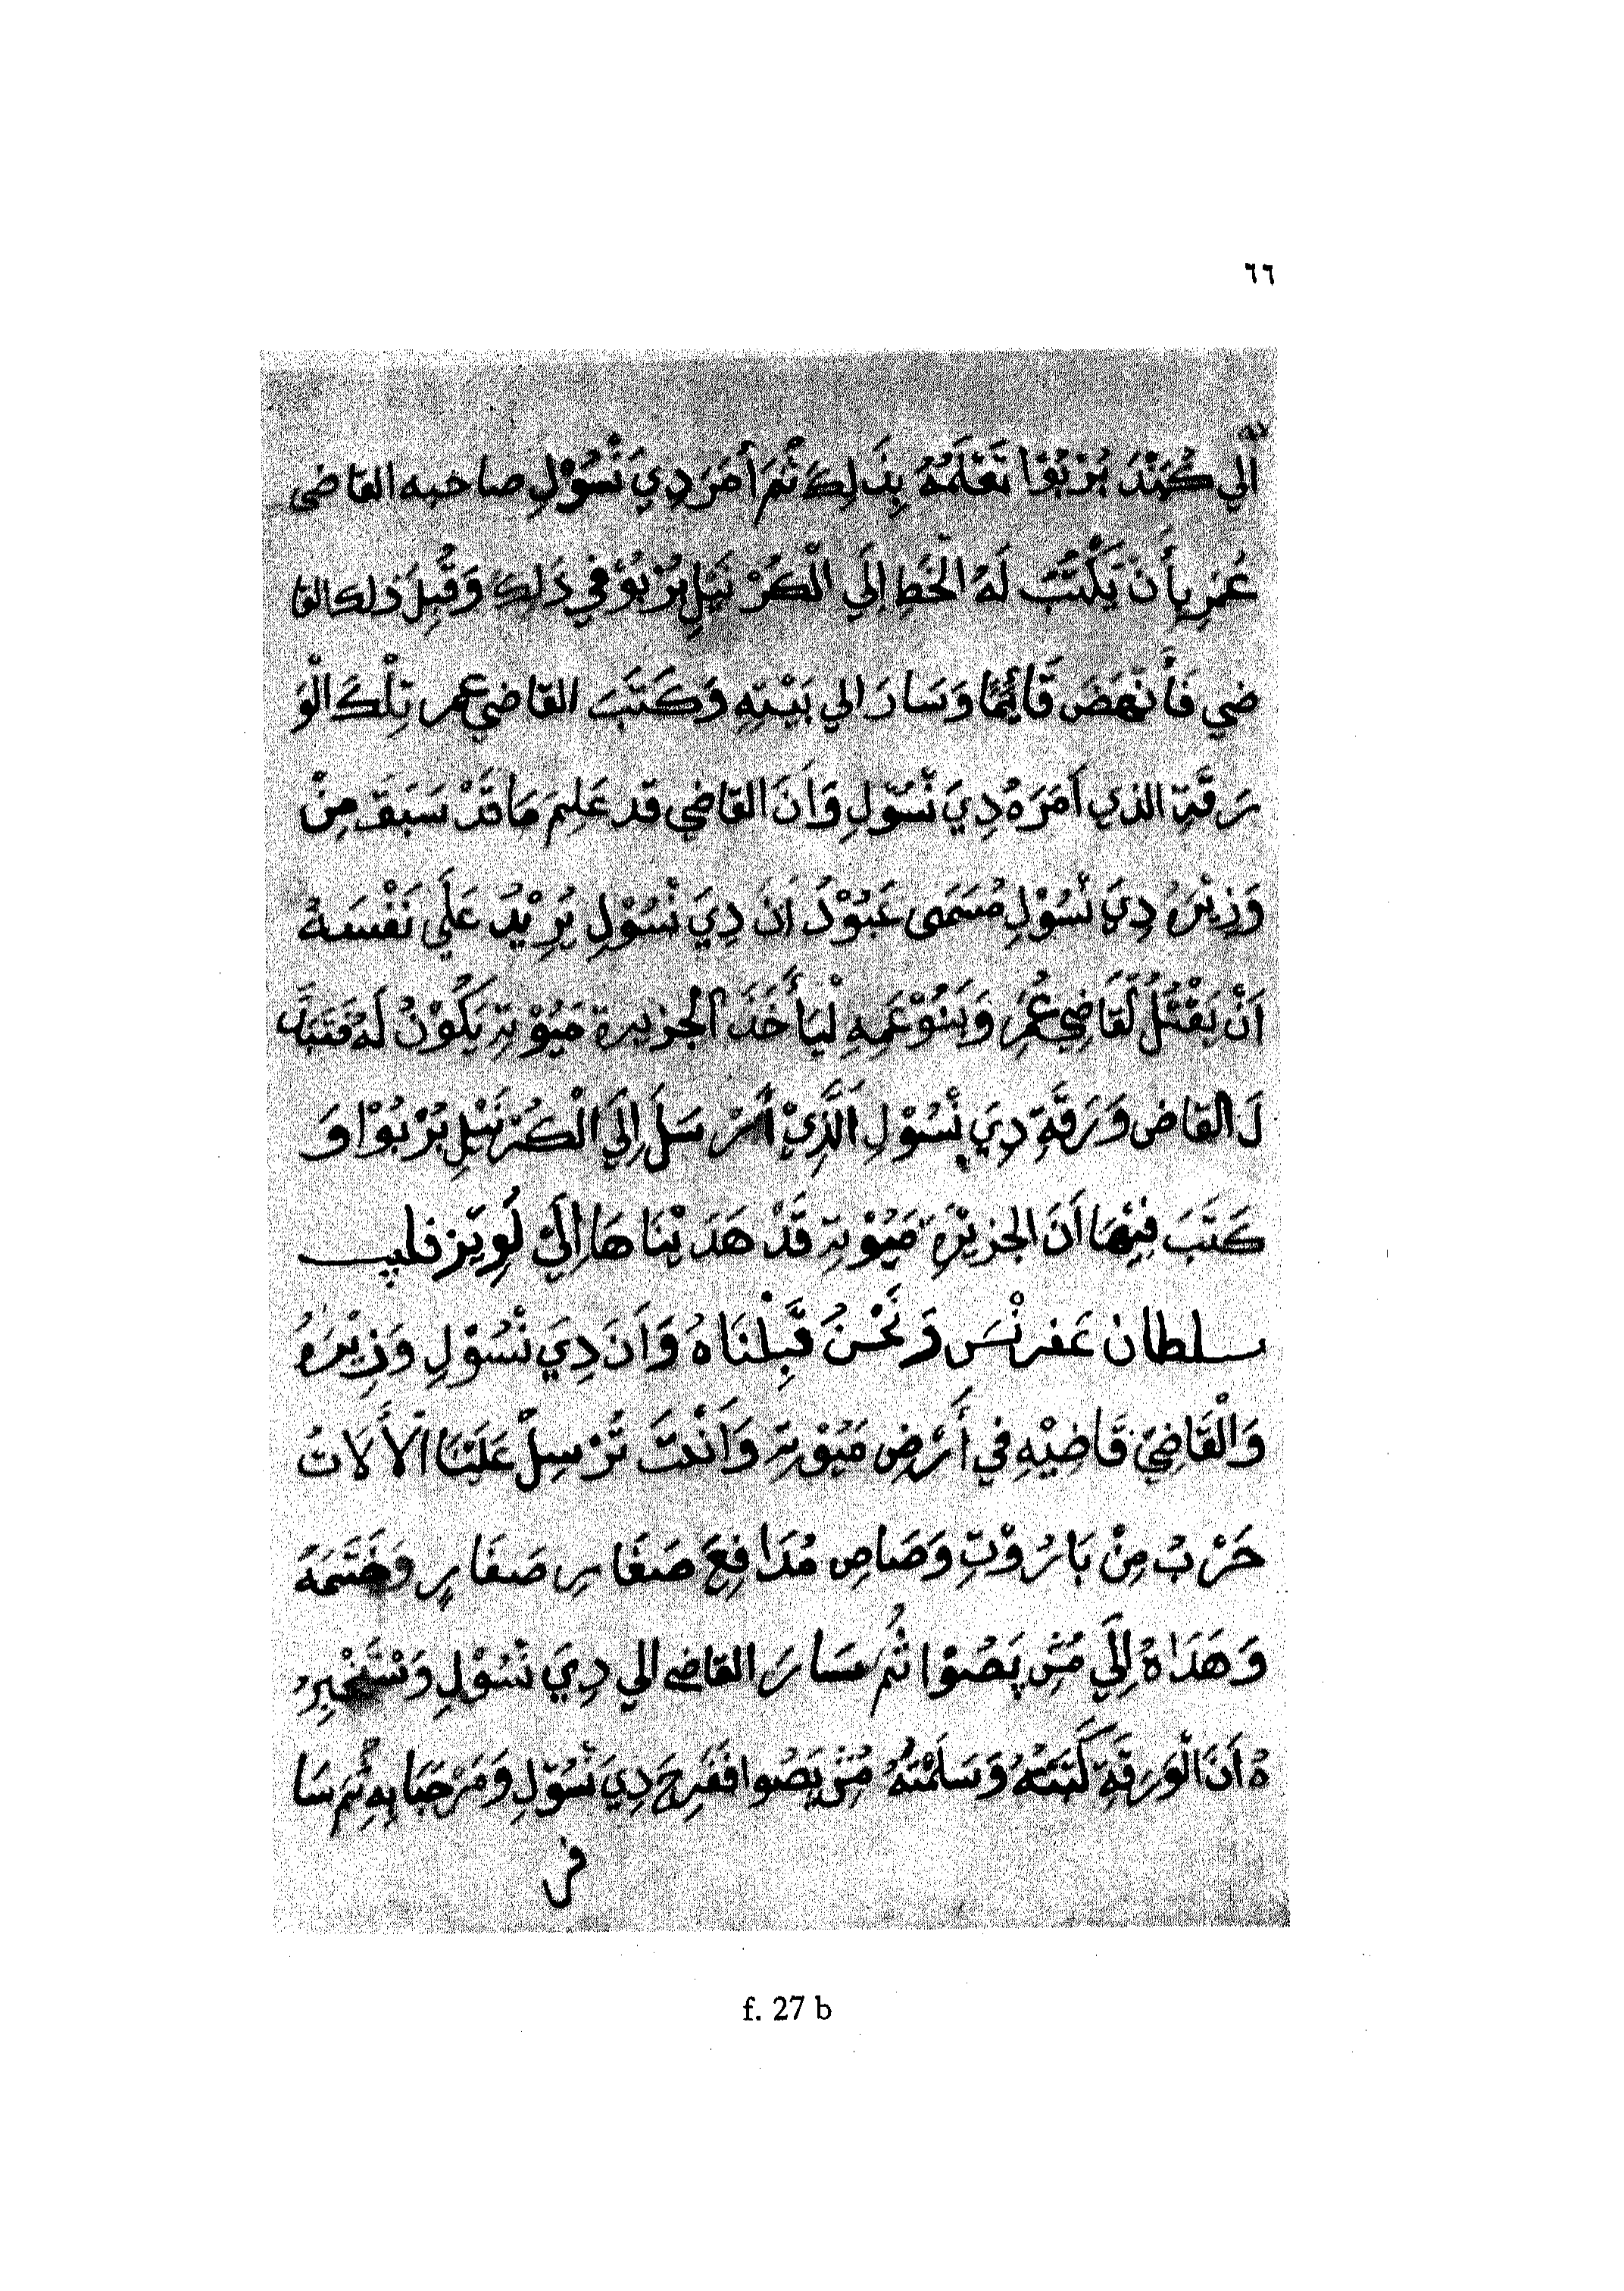 ٦٦
الي كُمَنْدَ بُرْبُوْا تَعْلَمُهُ بِذَلِكَ ثُمَ أَمَرَ دِيَ نْسُوْلِ صاحبه القاضى
عُمَرِ بِأَنْ يَكْتُبَ لَهُ الْخَطِ إِلَي الْكُرْنَيْلِ بُرْبُوْ في ذَلِكَ وَقُبِلَ ذلك القا
ضي فَأَنْهَضَ قَائِمًا وَسَارَ الي بَيْتِهِ وَكَتَبَ القاضي عمر تِلْكَ الْوَ
رَقَةِ الذي أَمَرَهُ دِيَ نْسُوْلِ وَأَنَ القاضي قد عَلِمَ مَا قَدْ سَبَقَ مِنْ
وَزِيْرُ دِيَ نْسُوْلِ مُسَمَى عَبُوْدُ أَنَ دِيَ نْسُوْلِ يُرِيْدُ عَلَي نَفْسَهُ
اَنْ يَقْتُلُ لْقَاضِي عُمَرِ وَبَنُوْ عَمِهِ لْيَأْخَذَ الجزيرة مَيُوْتِة يَكُوْنُ لَهُ فَقَبَلَ
لَ القاضى وَرَقَةِ دِيَ نْسُوْلِ الَّذِيْ أَرْسَلَ إِلَي الْكُرْنَيْلِ بُرْبُوْا وَ
كَتَبَ فِيْهَا اَنَ الجزيْرَةِ مَيُوْتِة قَدْ هَدَيْنَاهَا إِلَيْ لُوِيْز فليب
سلطان عَفرنْسَ وَنَحْنُ قَبِلْنَاهُ وَاَنَ دِيَ نْسُوْلِ وَزِيْرَهُ
وَالْقَاضِيْ قَاضِيْهِ في أَرْضِ مَيُوْتِة وَأَنْتَ تُرْسِلْ عَلَيْنَا الْأَلَاتُ
حَرْبُ مِنْ بَارُوْتِ وَصَاصِ مُدَافِعَ صَغَارِ صَغَارٍ وَخَتَمَهُ
وَهَدَاهُ إِلَي مُسْ بَصُوْا ثُمَ سَارَ القاضي الي دِيَ نْسُوْلِ وَسْتَخْبِرِ
هُ اَنَ الْوَرَقَةِ كَتَبْتُهُ وَسَلَمْتُهُ مُسْ بَصُوا فَفَرِحَ دِيَ نْسُوْلِ وَمَرْحَبَا بِهِ ثُمَ سَا
فر
f. 27 b